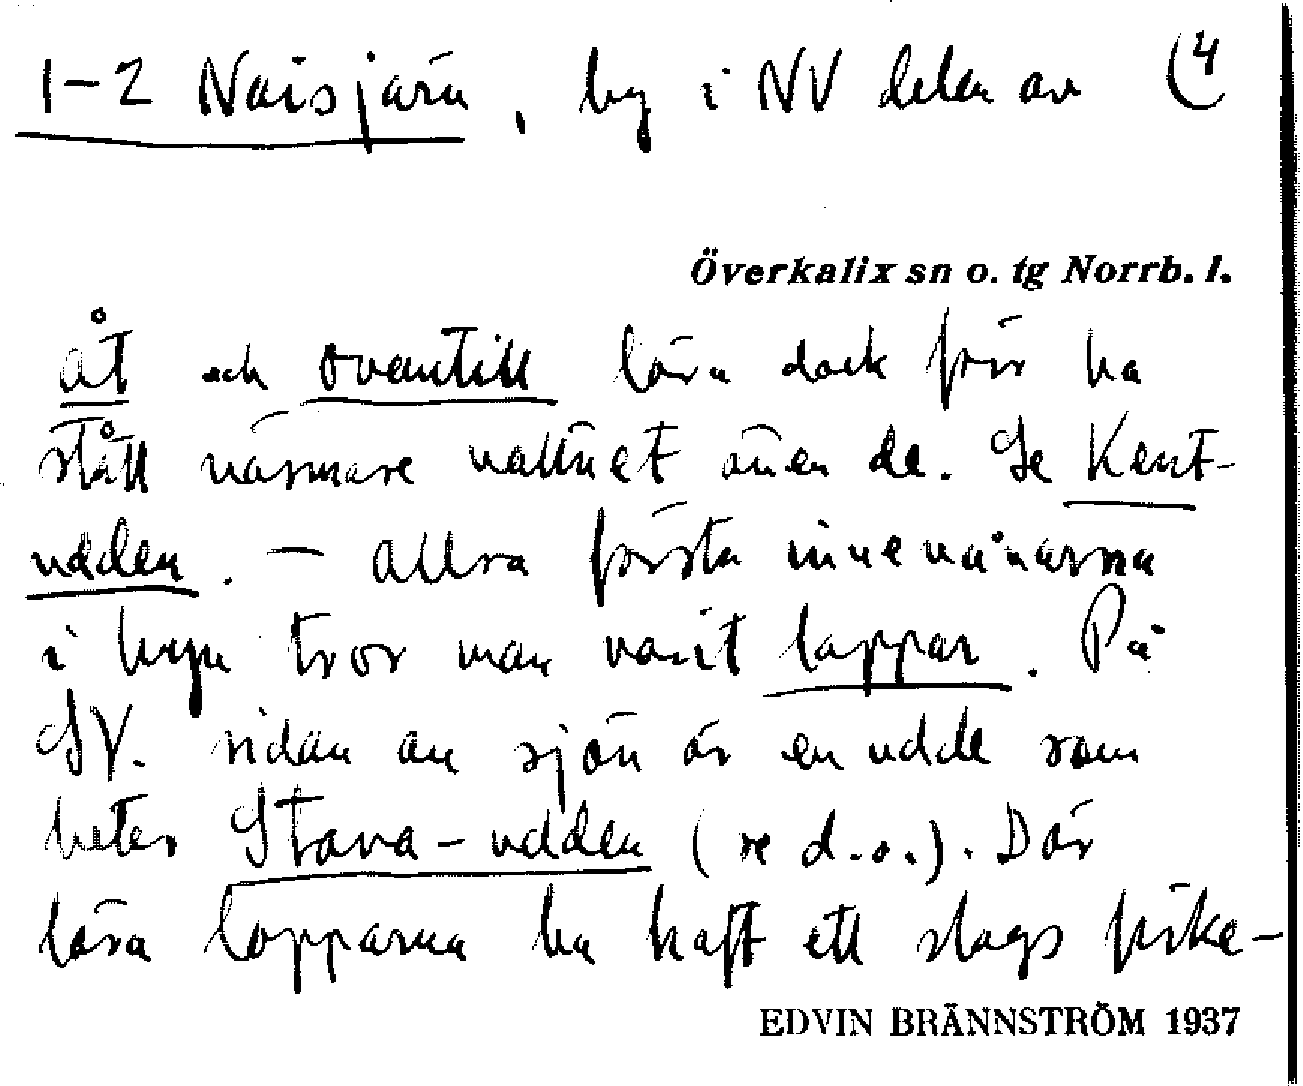 1-2 Naisjärv, by i NV delen av (4
Överkalix sn o. tg Norrb. l.
åt och ovantill lära dock förr ha
stått närmare vattnet än en de. Se Kent-
udden. - Allra första innevånarna
i byn tror man varit lappar. På
SV. sidan av sjön är en udde som
heter Stava-udden (se d.o.). Där
lära lapparna ha haft ett slags
EDVIN BRÄNNSTRÖM 1937